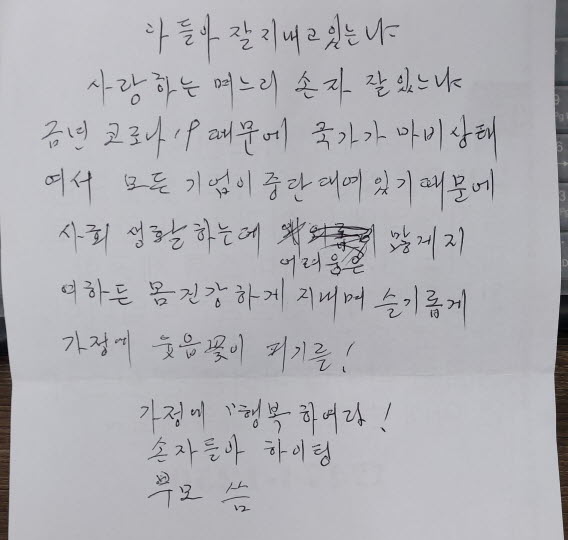 아들아 잘지내고 있는냐
사랑하는 며느리 손자 잘있느냐
금년 코로나 19 때문에 국가가 마비상태
여서 모든 기업이 중단대여 있기때문에
사회 생활하는데 많게지
어려움은
여하튼 몸건강하게 지내며 슬기롭게
가정에 웃음꽃이 피기를!
가정에 "행복하여라!
손자들아 하이팅
부모 씀